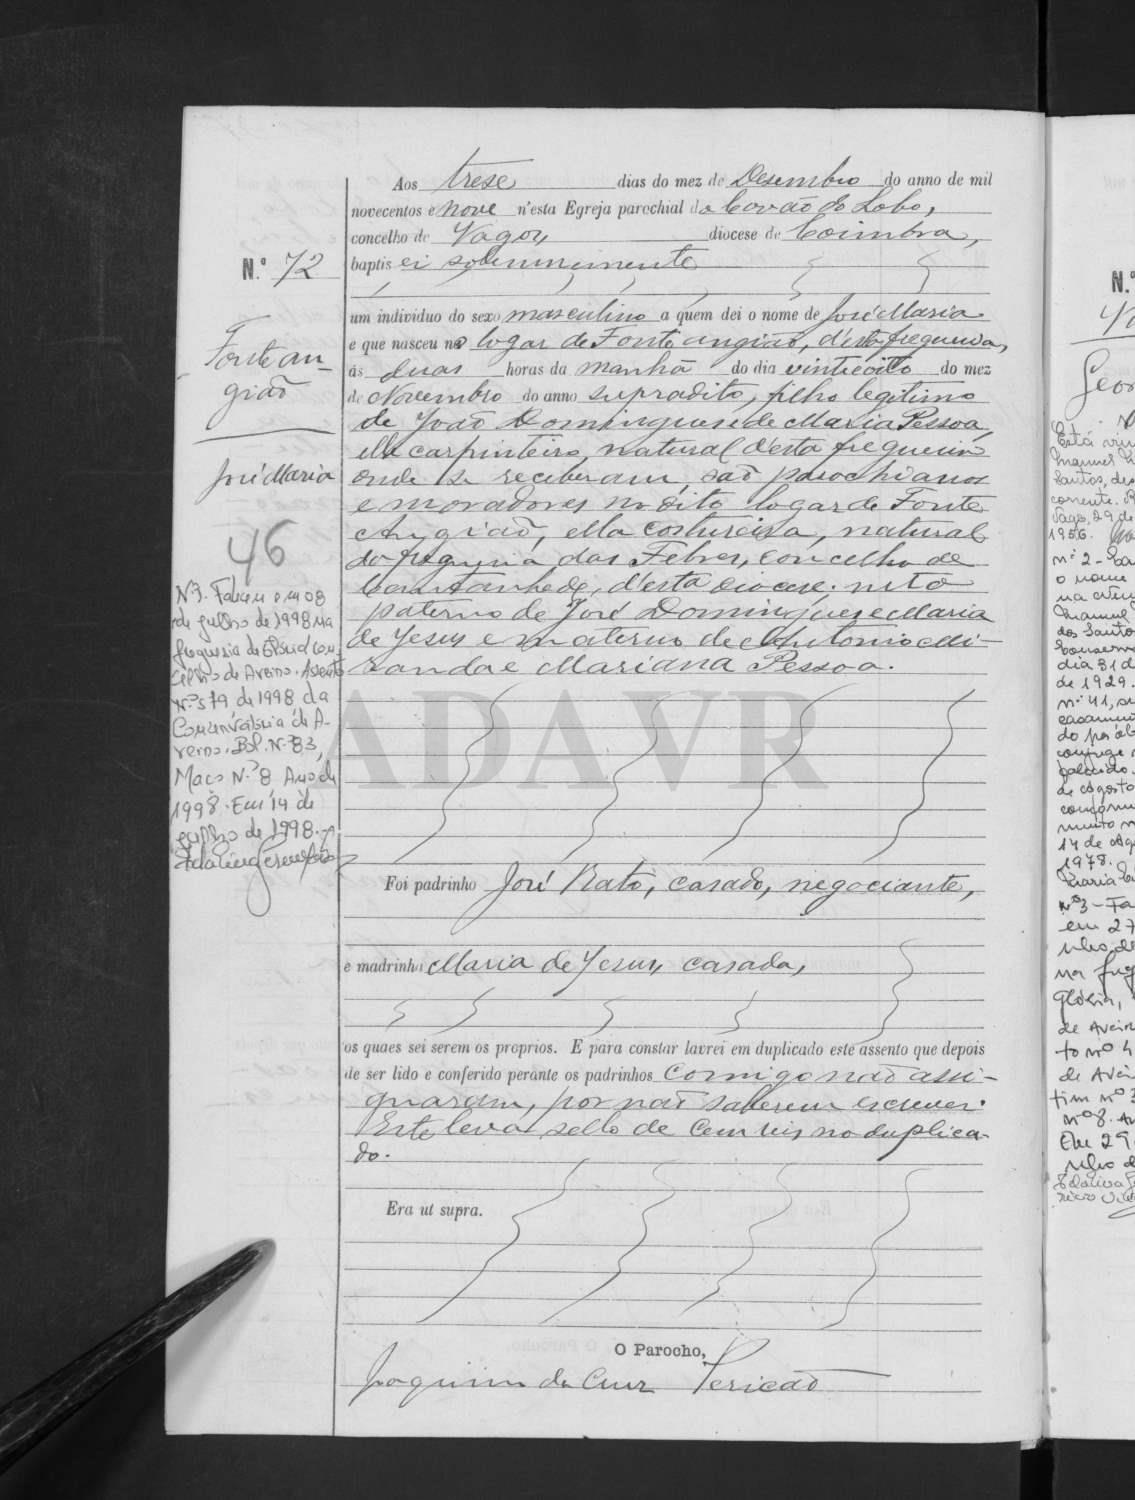 N.º 72
Fonte an-
gião
José Maria
46
N.º 1. Faleceu em 08
de julho de 1998 na
freguesia de con-
celho de Aveiro. Assento
N.º 579 de 1998 da
Conservatória de A-
veiro. Bol. N.º 83,
Maço N.º 8 Ano de
1998. Em 14 de
julho de 1998.
Aos trese dias do mez de Desembro do anno de mil
novecentos e nove n'esta Egreja parochial do Covão do Lobo,
concelho de Vagos, diocese de Coimbra,
baptisei solemnemente
um individuo do sexo masculino a quem dei o nome de José Maria
e que nasceu no logar de Fonte angião, d'esta freguesia,
ás duas horas da manhã do dia vinteoito do mez
de Novembro do anno supradito, filho legitimo
de João Domingues e de Maria Pessoa,
elle carpinteiro, natural d'esta freguesia
onde se receberam, são parochianos
e moradores no dito logar de Fonte
Angião, ella costureira, natural
da freguesia das Febres, concelho de
Cantanhede, d'esta diocese: neto
paterno de José Domingues e Maria
de Jesus e materno de Antonio Mi-
randa e Mariana Pessoa.
ADAVR
Foi padrinho José Rato, casado, negociante,
e madrinha Maria de Jesus, casada,
os quaes sei serem os proprios. E para constar lavrei em duplicado este assento que depois
de ser lido e conferido perante os padrinhos comigo não assi-
gnaram, por não saberem escrever.
Este leva sello de cem reis no duplica-
do.
Era ut supra.
O Parocho,
Joaquim da Cruz Pericão
N.º
Está
1956.
n.º 2 -
o nome
dia 31 d
de 1929.
n.º 41,
de agosto
14 de Ag
1978.
n.º 3 - Fa
em 27
Glória,
de Aveir
to nº 4
de Avei
nº 8. An
Em 29